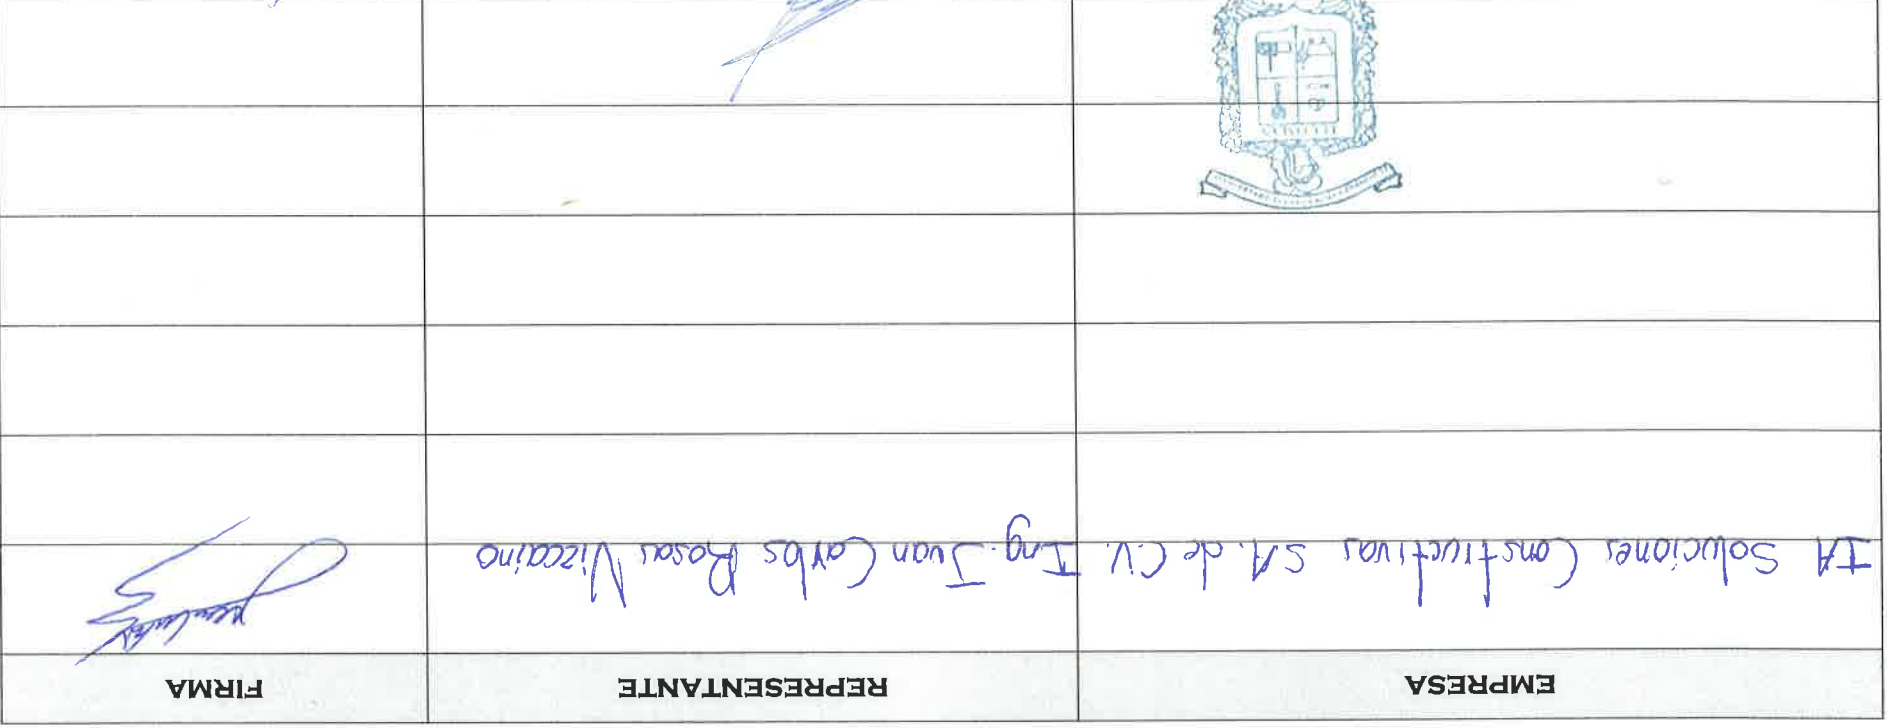 EMPRESA REPRESENTANTE FIRMA
IA Soluciones Constructivas S.A. de C.V. Ing. Juan Carlos Rosas Vizcaino